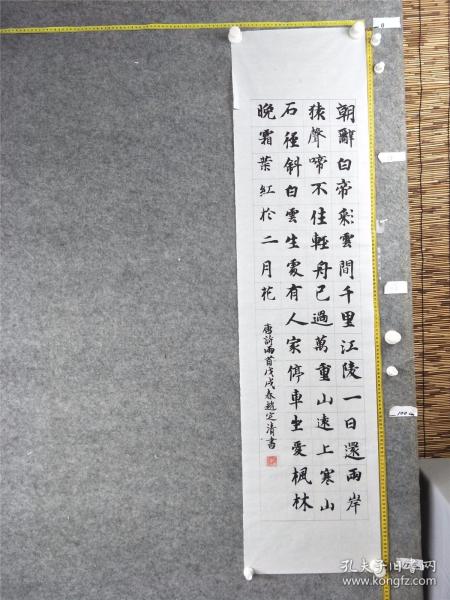 朝辭白帝彩雲間千里江陵一日還兩岸
猿聲啼不住輕舟已過萬重山遠上寒山
石徑斜白雲生處有人家停車坐愛楓林
晚霜葉紅於二月花
唐詩兩首戊戌春趙定清書
孔夫子旧书网
www.kongfz.com